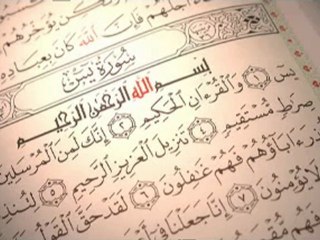 يُؤَخِّرُهُمْ
أَجَلُهُمْ فَإِنَّ اللَّهَ كَانَ بِعِبَادِهِ
سُورَةُ يسٓ
بِسْمِ اللَّهِ الرَّحْمَٰنِ الرَّحِيمِ
يسٓ ١ وَالْقُرْءَانِ الْحَكِيمِ ٢ إِنَّكَ لَمِنَ الْمُرْسَلِينَ
صِرَٰطٍ مُّسْتَقِيمٍ ٤ تَنزِيلَ الْعَزِيزِ الرَّحِيمِ ٥ لِتُنذِ
ءَابَآؤُهُمْ فَهُمْ غَٰفِلُونَ ٦ لَقَدْ حَقَّ الْقَوْلُ
لَا يُؤْمِنُونَ ٧ إِنَّا جَعَلْنَا فِىٓ